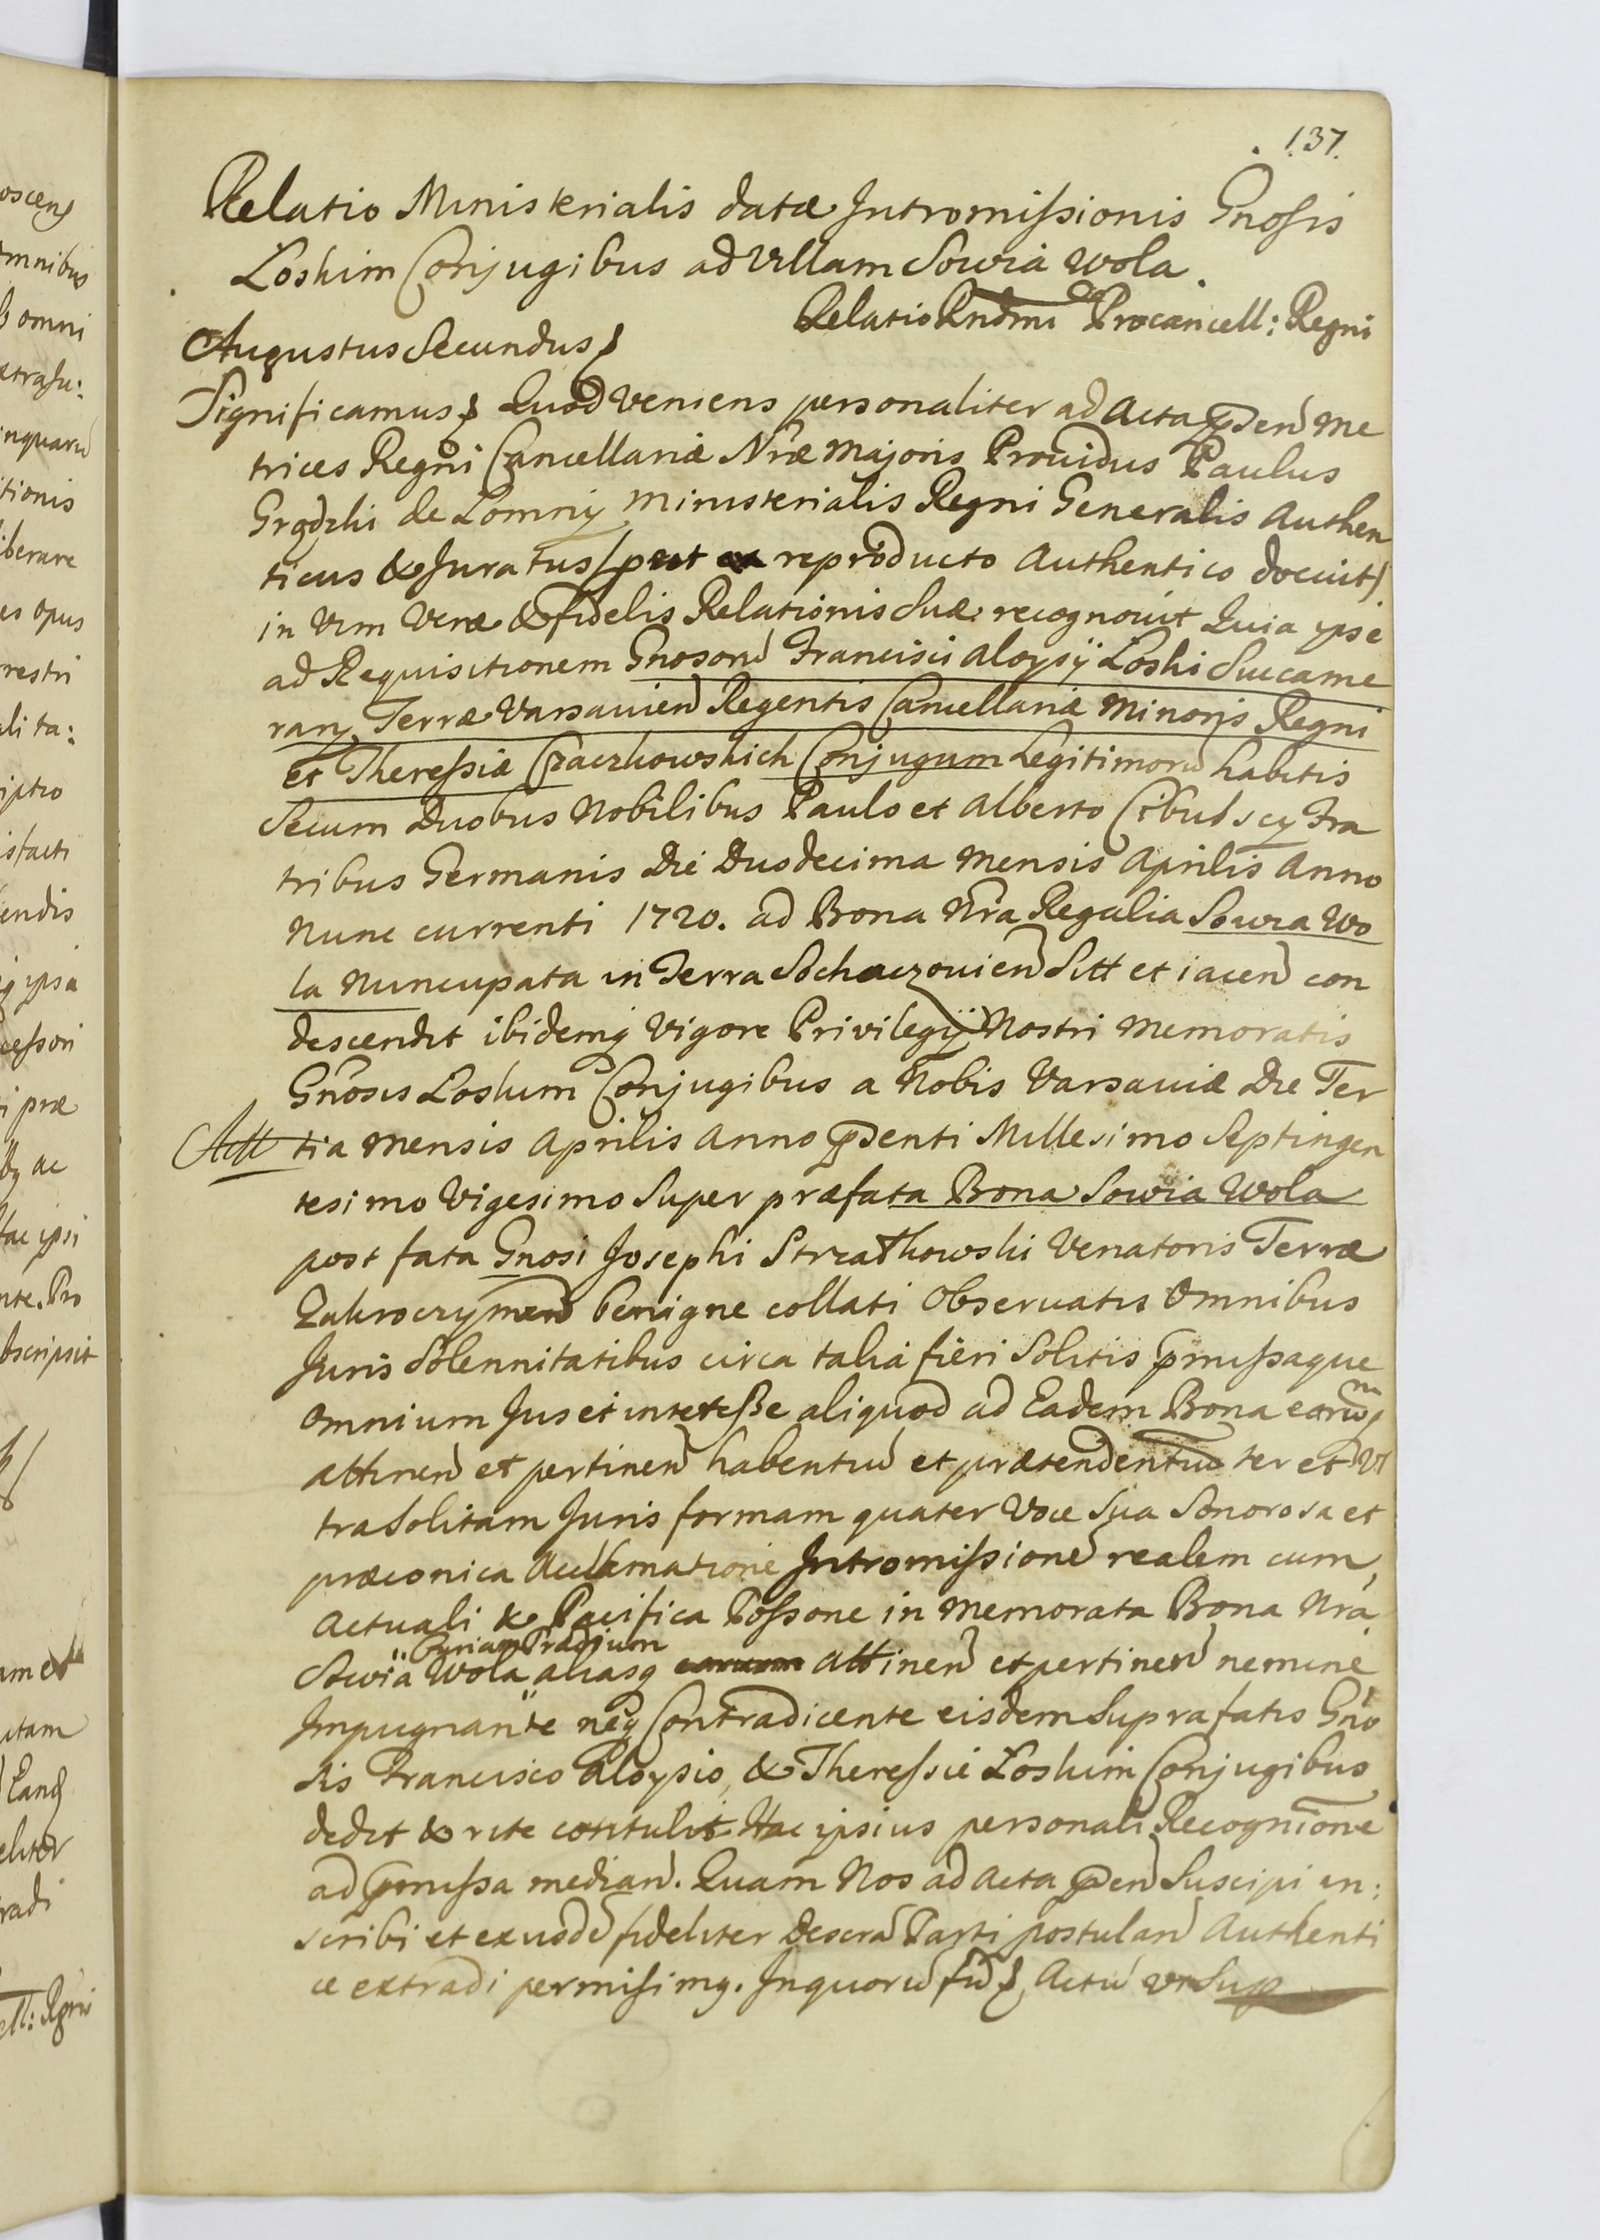 137.
Relatio Ministerialis datæ Intromissionis Gnosis
Loskim Conjugibus ad Villam Sowia Wola.
Relatio Rndmi Procancell: Regni
Augustus Secundus
Significamus Quod Veniens personaliter ad Acta pnden Me
trices Regni Cancellariæ Nræ Majoris Providus Paulus
Grodzki de Lomny Ministerialis Regni Generalis Authen
ticus & Juratus (prut ex reproducto Authentico docuit)
in Vim Veræ & fidelis Relationis Suæ recognovit Quia ipse
ad Requisitionem Gnosorū Francisci Aloysij Loski Succame
rarij Terræ Varsavien Regentis Cancellariæ Minoris Regni
et Theressiæ Czaczkowskich Conjugum Legitimorū habitis
Secum Duobus Nobilibus Paulo et Alberto Fra
tribus Germanis Die Duodecima Mensis Aprilis Anno
Nunc currenti 1720. ad Bona Nra Regalia Sowia Wo
la Nuncupata in Terra Sochaczovien Sitt et iacen con
descendit ibidemq Vigore Privilegij Nostri Memoratis
Gnosis Loskim Conjugibus a Nobis Varsaviæ Die Ter
tia Mensis Aprilis Anno pnsenti Millesimo Septingen
tesimo Vigesimo Super præfata Bona Sowia Wola
post fata Gnosi Josephi Strzałkowski Venatoris Terræ
Zakroczymen benigne collati Observatis Omnibus
Juris Solennitatibus circa talia fieri Solitis pmissaque
Omnium Jus et interesse aliquod ad Eadem Bona earūq
attinen et pertinen habentiū et prætendentiū ter et Vl
tra Solitam Juris formam quater Voce Sua Sonorosa et
præconica Acclamatione Intromissionē realem cum
Actuali & Pacifica Possone in Memorata Bona Nra
Curiam Prædium
Sowia Wola aliasq attinen et pertinen nemine
Impugnante neq Contradicente eisdem Suprafatis Gno
sis Francisco Aloysio, & Theressiæ Loskim Conjugibus
dedit & rite contulit Hac ipsius personali Recognitione
ad pmissa median. Quam Nos ad Acta pnden Suscipi in:
scribi et exusdē fideliter Descrā Parti postulan Authenti
ce extradi permisimq. In quorū fid Actū ut Sup